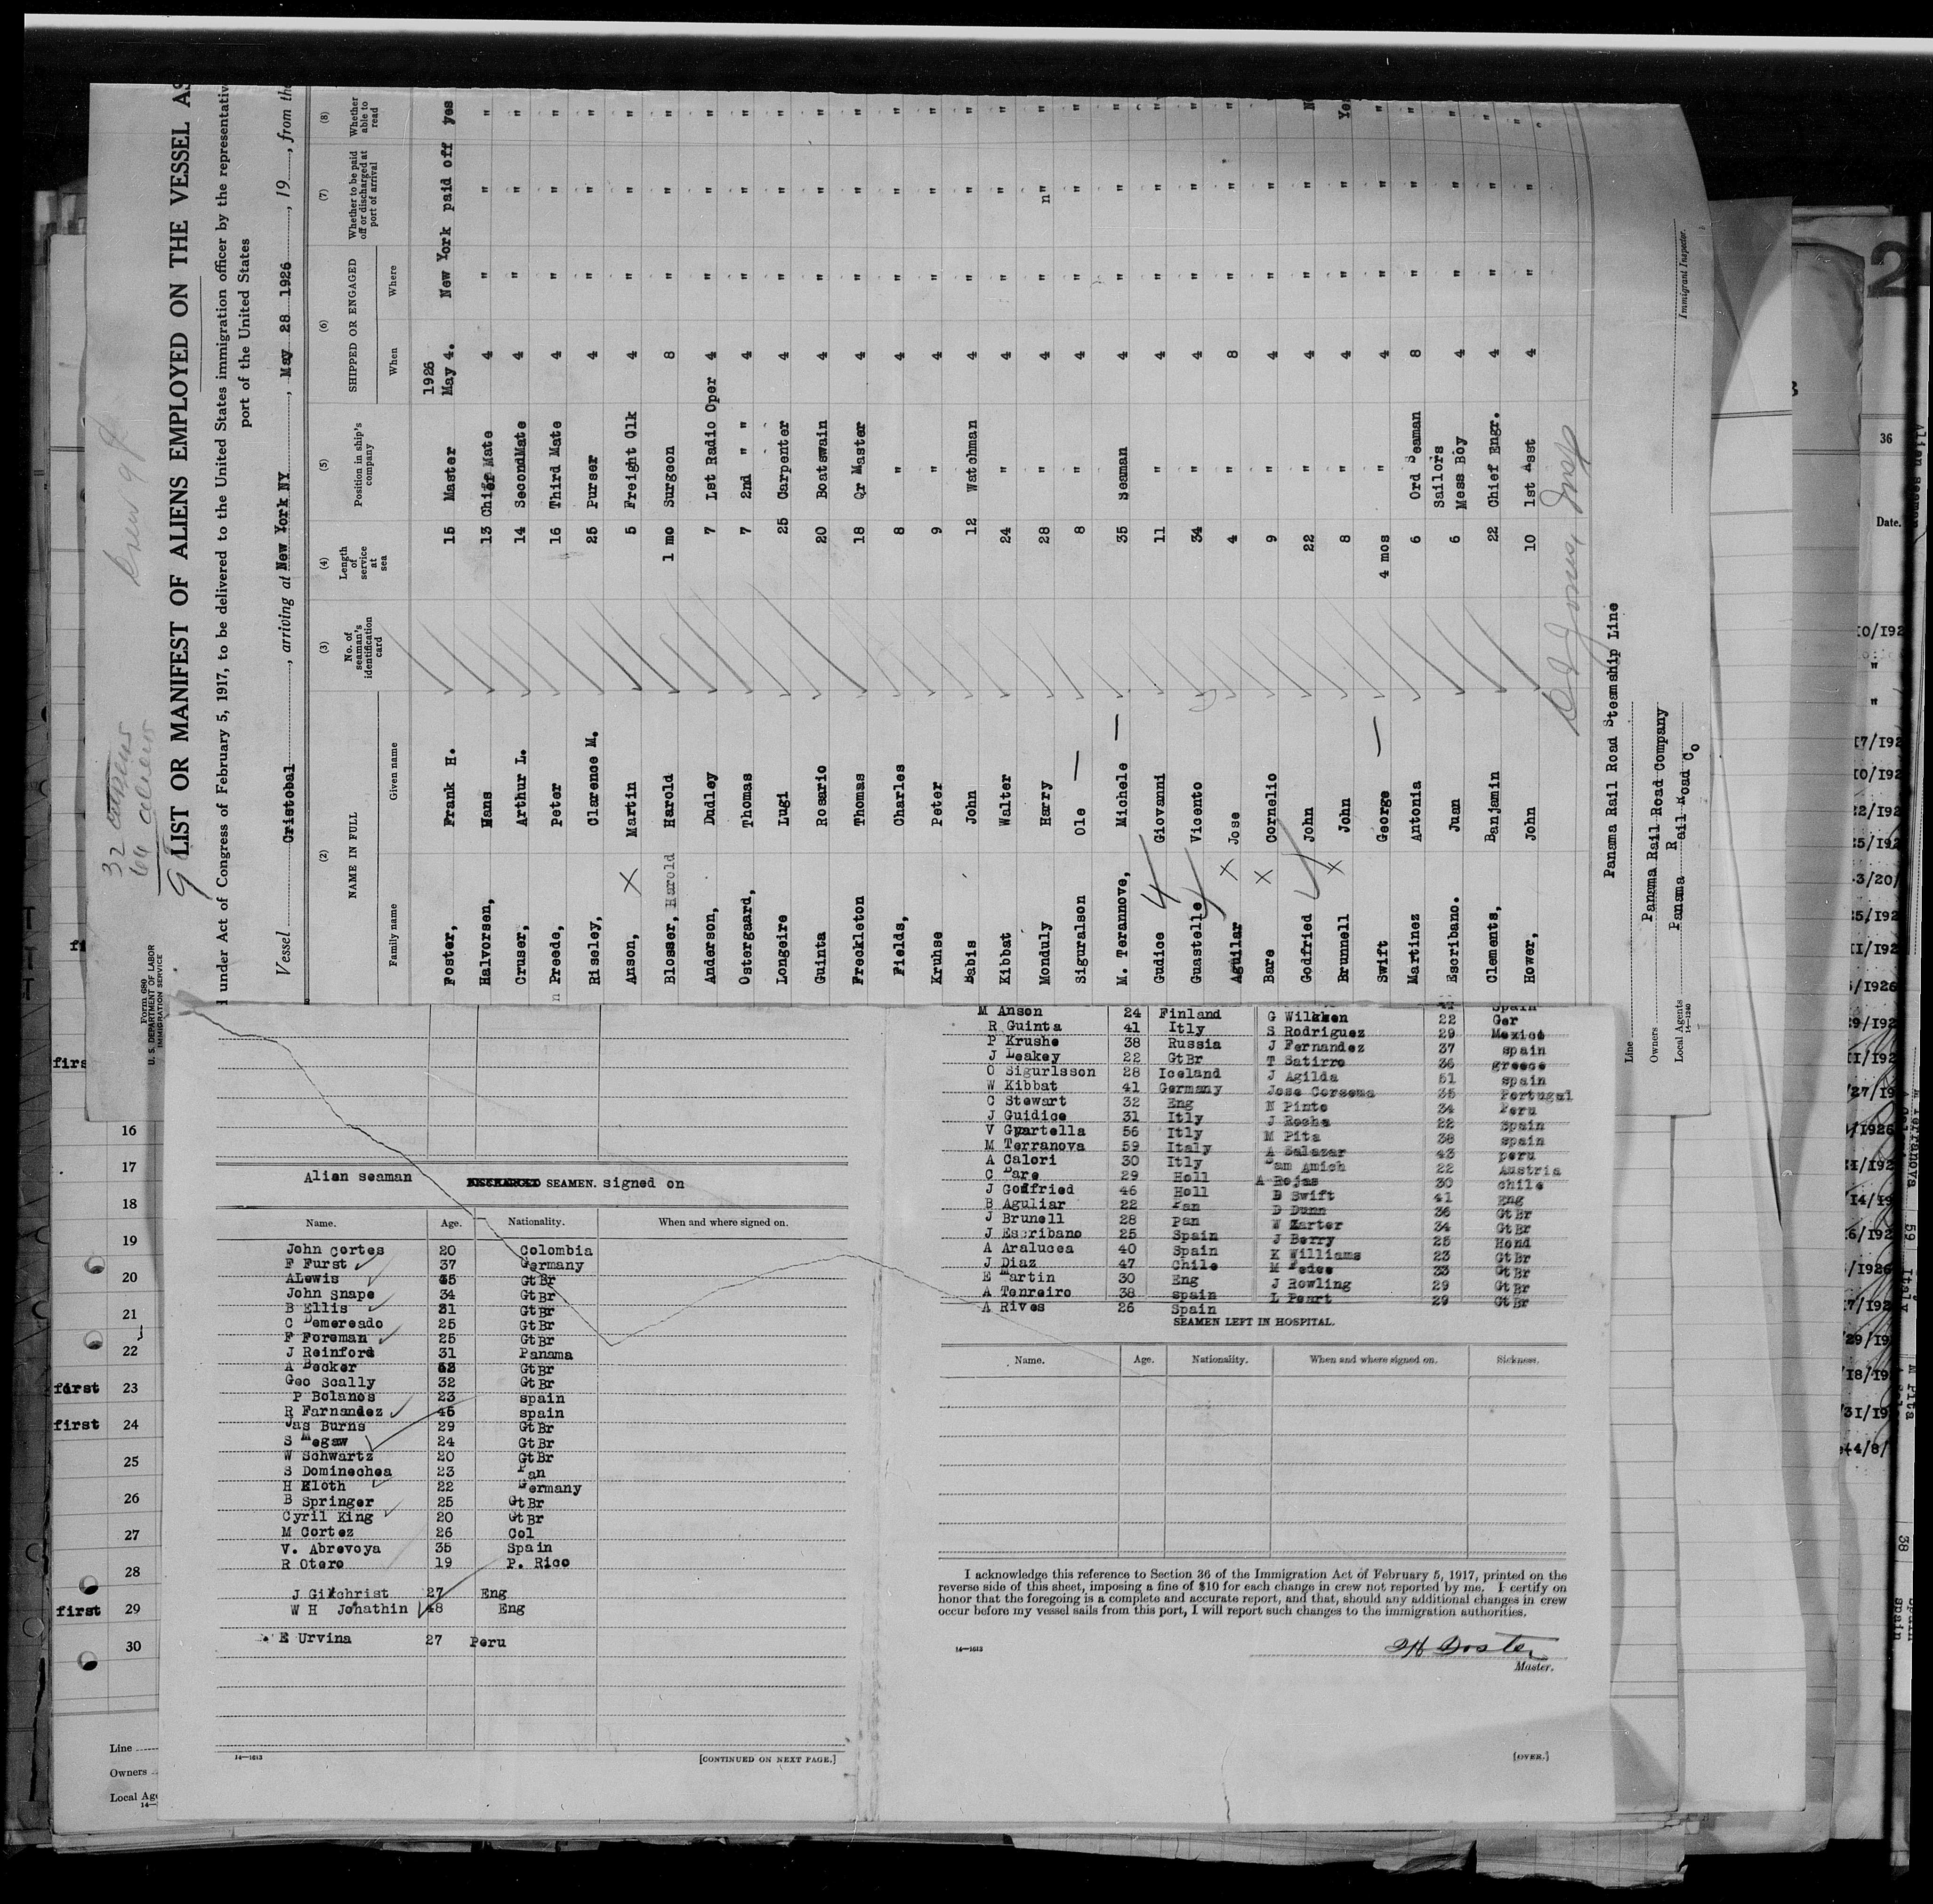 32 citizens
66 aliens
Crew 98
Form 680
U. S. DEPARTMENT OF LABOR
IMMIGRATION SERVICE
LIST OR MANIFEST OF ALIENS EMPLOYED ON THE VESSEL AS
d under Act of Congress of February 5, 1917, to be delivered to the United States immigration officer by the representativ
port of the United States
Vessel Cristobal, arriving at New York NY, May 28 1926, 19, from the
(2) (3) (4) (5) (6) (7) (8)
NAME IN FULL No. of seaman's identification card Length of service at sea Position in ship's company SHIPPED OR ENGAGED Whether to be paid off or discharged at port of arrival Whether able to read
Family name Given name When Where
1926
Foster, Frank H. 15 Master May 4. New York paid off yes
Halvorsen, Hans 13 Chief Mate 4 " " "
Cruser, Arthur L. 14 SecondMate 4 " " "
Preede, Peter 16 Third Mate 4 " " "
Riseley, Clarence M. 25 Purser 4 " " "
Anson, X Martin 5 Freight Clk 4 " " "
Blosser, Harold Harold 1 mo Surgeon 8 " " "
Anderson, Dudley 7 Lst Radio Oper 4 " " "
Ostergaard, Thomas 7 2nd " " 4 " " "
Longeire Lugi 25 Carpenter 4 " " "
Guinta Rosario 20 Boatswain 4 " " "
Freckleton Thomas 18 Qr Master 4 " " "
Fields, Charles 8 " 4 " " "
Kruhse Peter 9 " 4 " " "
Babis John 12 Watchman 4 " " "
Kibbat Walter 24 " 4 " " "
Monduly Harry 28 " 4 " n" "
Siguralson Ole 8 " 4 " " "
M. Terannove, Michele 35 Seaman 4 " " "
Gudice Giovanni 11 " 4 " " "
Guastelle Vicento 34 " 4 " " "
Aguilar X Jose 4 " 8 " " "
Bare X Cornelio 9 " 4 " " "
Godfried John 22 " 4 " " N
Brunnell X John 8 " 4 " " Ye
Swift George 4 mos " 4 " " "
Martinez Antonia 6 Ord Seaman 8 " " "
Escribano. Juan 6 Sailors Mess Boy 4 " " "
Clements, Banjamin 22 Chief Engr. 4 " " "
Hower, John 10 1st Asst 4 " " "
Line Panama Rail Road Steamship Line
Owners Panama Rail Road Company
Local Agents Panama Rail Road Co
14-1240
Immigrant Inspector.
Alien seaman DISCHARGED SEAMEN. signed on
Name. Age. Nationality. When and where signed on.
John Cortes 20 Colombia
F Furst 37 Germany
ALewis 45 GtBr
John Snape 34 GtBr
B Ellis 31 GtBr
C Demereado 25 GtBr
F Foreman 25 GtBr
J Reinford 31 Panama
A Becker GtBr
Geo Scally 32 GtBr
P Bolanos 23 spain
R Farnandez 45 spain
Jas Burns 29 GtBr
S Megaw 24 GtBr
W Schwartz 20 GtBr
S Dominechea 23 Pan
H Kloth 22 Germany
B Springer 25 GtBr
Cyril King 20 GtBr
M Cortez 26 Col
V. Abrevoya 35 Spain
R Otero 19 P. Rico
J Gilchrist 27 Eng
W H Johathin 48 Eng
E Urvina 27 Peru
14-1613
[CONTINUED ON NEXT PAGE.]
M Anson 24 Finland
R Guinta 41 Itly
P Krushe 38 Russia
J Leakey 22 GtBr
O Sigurlsson 28 Iceland
W Kibbat 41 Germany
C Stewart 32 Eng
J Guidice 31 Itly
V Guartella 56 Itly
M Terranova 59 Italy
A Calori 30 Itly
C Bare 29 Holl
J Godfried 46 Holl
B Aguliar 22 Pan
J Brunell 28 pan
J Escribano 25 Spain
A Aralucea 40 Spain
J Diaz 47 Chile
E Martin 30 Eng
A Tenreiro 38 spain
A Rives 26 Spain
Spain
G Wilkken 22 Ger
S Rodriguez 29 Mexico
J Fernandez 37 spain
T Satirro 36 greece
J Agilda 51 spain
Jose Corsema 35 Portugal
N Pinto 34 Peru
J Rocha 22 Spain
M Pita 38 spain
A Salazar 43 peru
Sam Amich 22 Austria
A Rojas 30 chile
D Swift 41 Eng
D Dunn 36 GtBr
W Zarter 34 GtBr
J Berry 25 Hond
K Williams 23 GtBr
M Pedee 33 GtBr
J Rowling 29 GtBr
L Peart 29 GtBr
SEAMEN LEFT IN HOSPITAL.
Name. Age. Nationality. When and where signed on. Sickness.
I acknowledge this reference to Section 36 of the Immigration Act of February 5, 1917, printed on the
reverse side of this sheet, imposing a fine of $10 for each change in crew not reported by me. I certify on
honor that the foregoing is a complete and accurate report, and that, should any additional changes in crew
occur before my vessel sails from this port, I will report such changes to the immigration authorities.
14-1613
Master.
[OVER.]
16
17
18
19
20
21
22
first 23
first 24
25
26
27
28
first 29
30
Line
Owners
Local Age
36
Date.